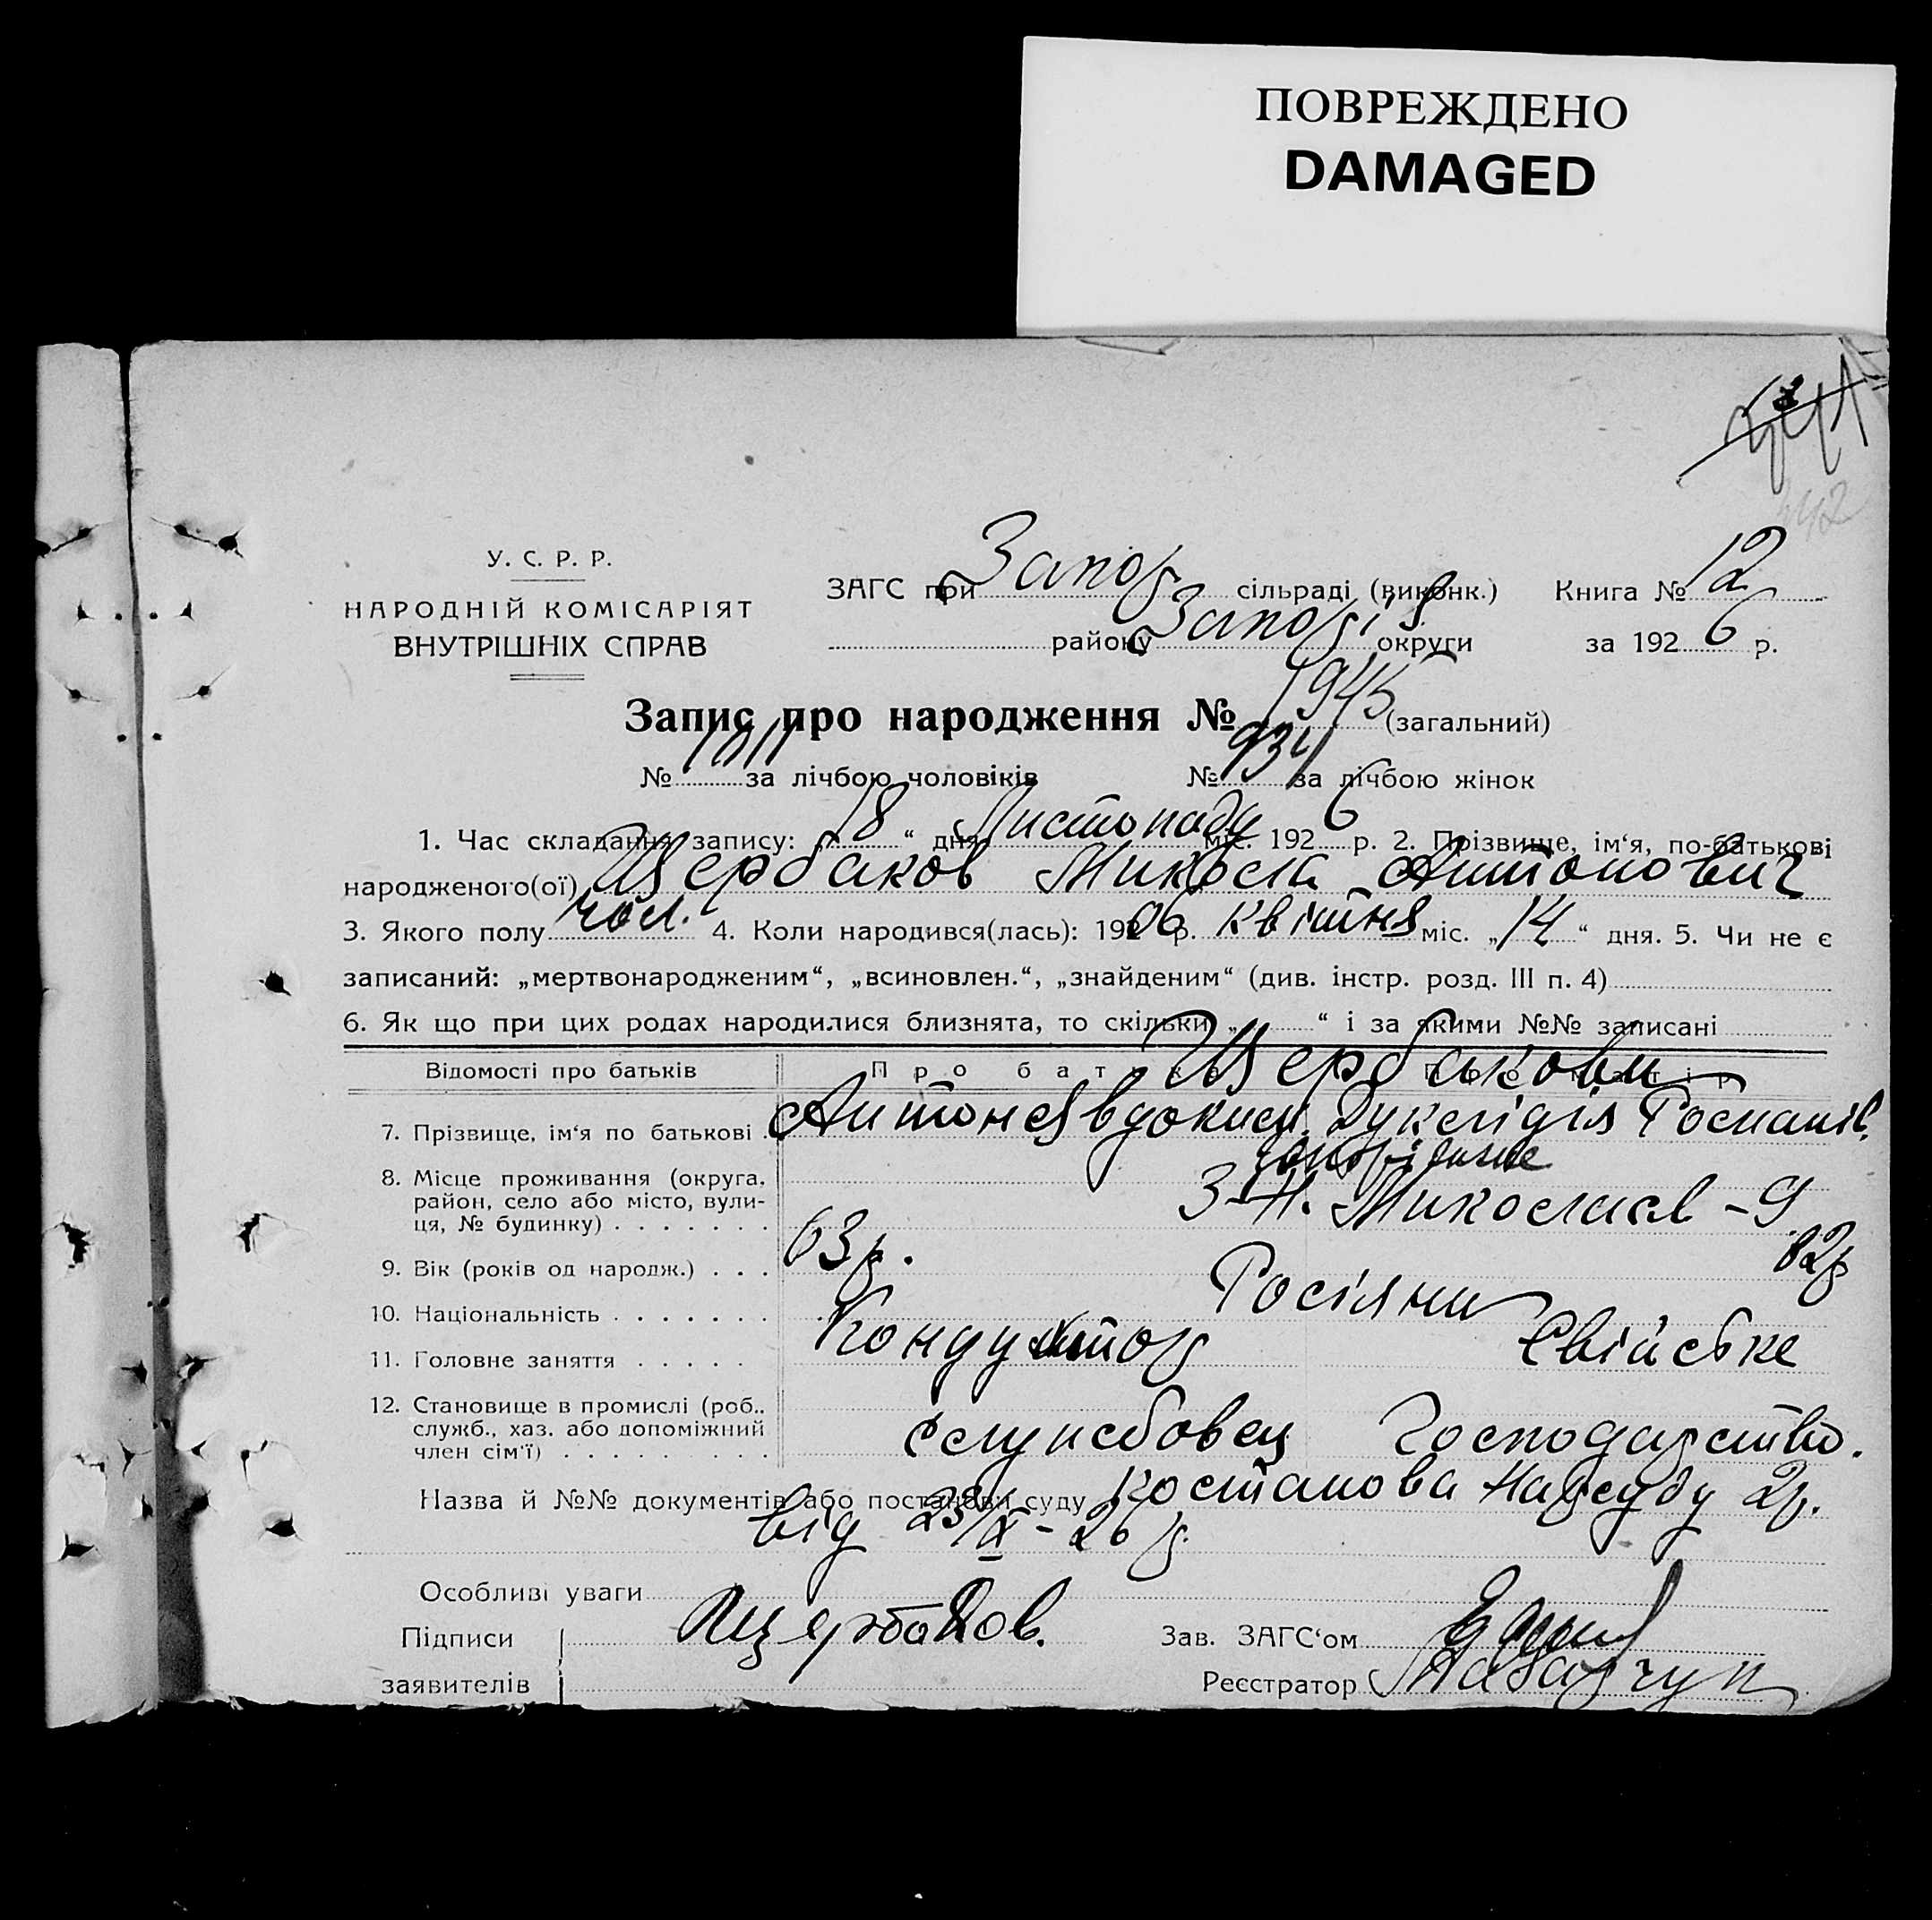 ПОВРЕЖДЕНО
DAMAGED
442
У. С. Р. Р.
НАРОДНІЙ КОМІСАРІЯТ
ВНУТРІШНІХ СПРАВ
ЗАГС при Запор сільраді (виконк.) Книга № 12
району Запоріз округи за 1926 р.
Запис про народження № 1945 (загальний)
№ 1011 за лічбою чоловіків № 934 за лічбою жінок
1. Час складання запису: „18“ дня Листопаду міс. 1926 р. 2. Прізвище, ім‘я, по-батькові
народженого(ої) Щербаков Микола Антонович
3. Якого полу чол. 4. Коли народився(лась): 1906 р. квітня міс. „14“ дня. 5. Чи не є
записаний: „мертвонародженим“, „всиновлен.“, „знайденим“ (див. інстр. розд. III п. 4)
6. Як що при цих родах народилися близнята, то скільки „ “ і за якими №№ записані
Відомості про батьків Про батька Про матір
Щербакови
7. Прізвище, ім‘я по батькові Антон Явдоким.
8. Місце проживання (округа, район, село або місто, вулиця, № будинку) Запоріжжє
З-Н. Миколаєв - 9
9. Вік (років од народж.) 63 р. 82 р
10. Національність Росіяни
11. Головне заняття Кондуктор Свійське
12. Становище в промислі (роб., служб., хаз. або допоміжний член сім‘ї) служебовец Господарство.
Назва й №№ документів або постанови суду Постанова Нарсуду 2р.
від 23/X - 26 р.
Особливі уваги
Підписи Щербаков. Зав. ЗАГС‘ом
заявителів Реєстратор Назарчук